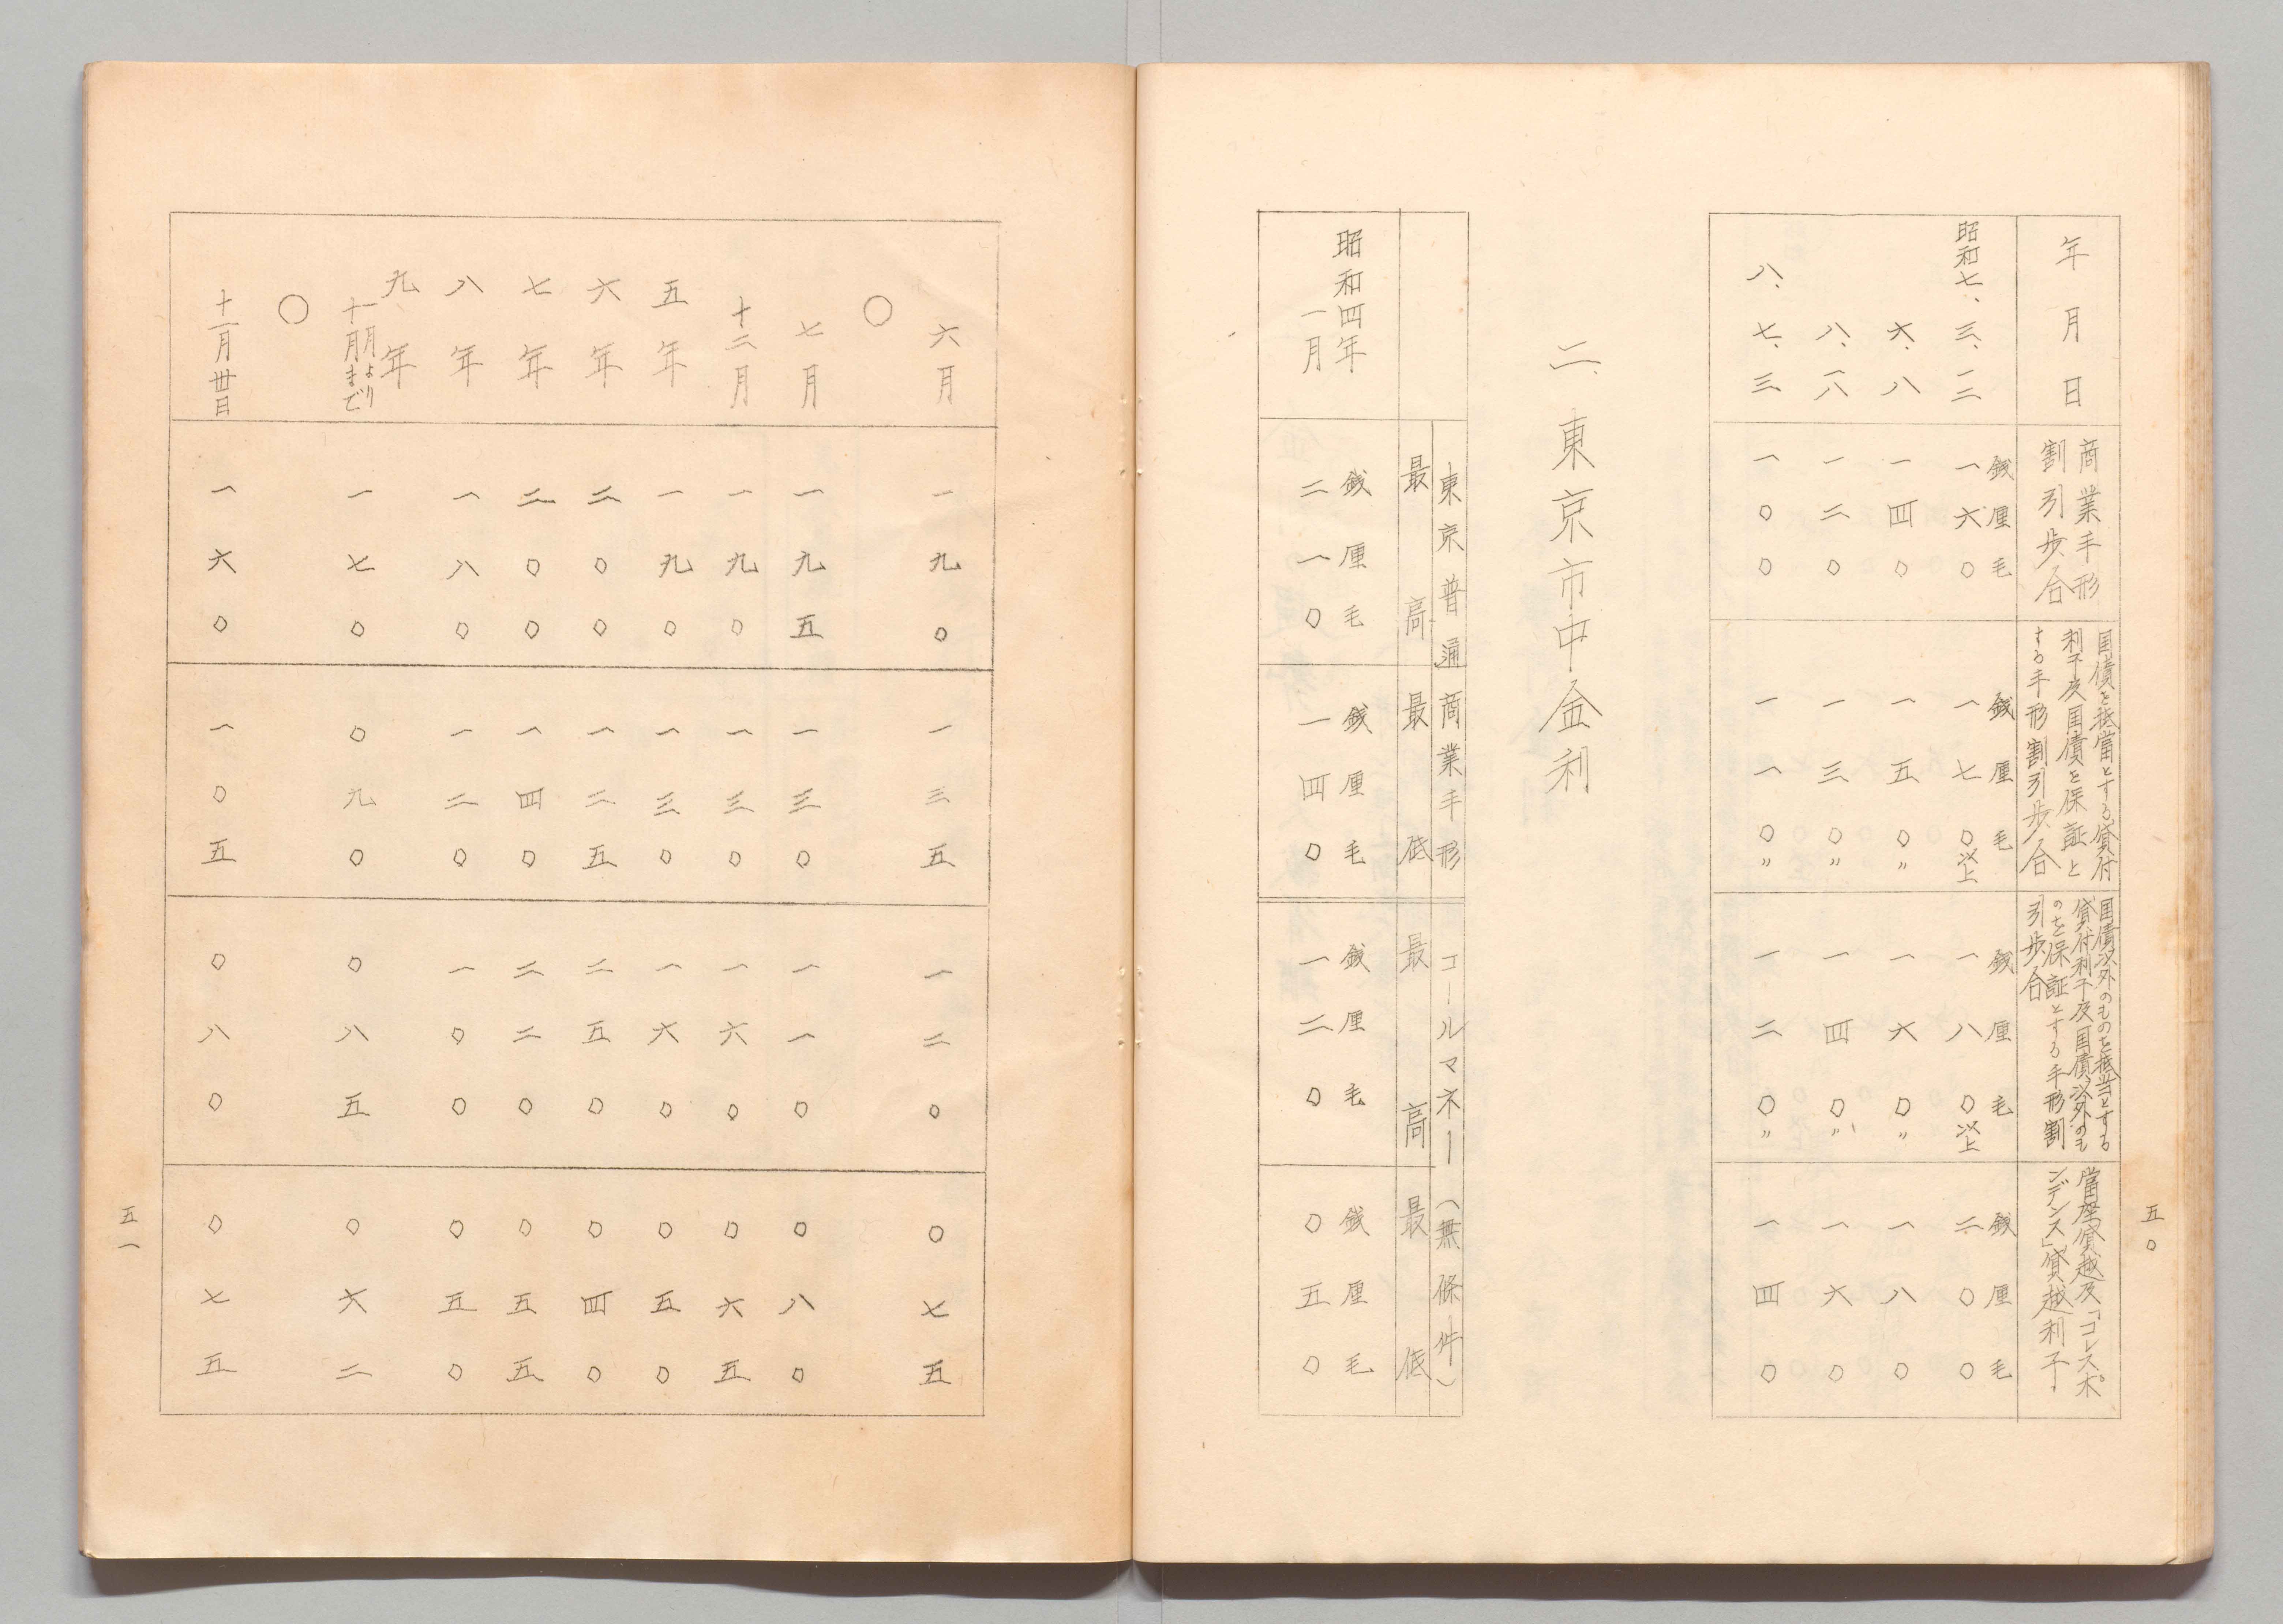 五〇
年月日
商業手形
割引歩合
国債を抵當とする貸付
利子及国債を保証と
する手形割引歩合
国債以外のものを抵当とする
貸付利子及国債以外のも
のを保証とする手形割
引歩合
當座貸越及「コレスポ
ンデンス」貸越利子
銭厘毛
銭厘毛
銭厘毛
銭厘毛
昭和七、三、一二
一六〇
一七〇以上
一八〇以上
二〇〇
六、八
一四〇
一五〇〃
一六〇〃
一八〇
八、一八
一二〇
一三〇〃
一四〇〃
一六〇
八、七、三
一〇〇
一一〇〃
一二〇〃
一四〇
二、東京市中金利
東京普通商業手形
コールマネー(無條件)
最高
最低
最高
最低
銭厘毛
銭厘毛
銭厘毛
銭厘毛
昭和四年
一月
二一〇
一四〇
一二〇
〇五〇
六月
一九〇
一三五
一二〇
〇七五
〇
七月
一九五
一三〇
一一〇
〇八〇
十二月
一九〇
一三〇
一六〇
〇六五
五年
一九〇
一三〇
一六〇
〇五〇
六年
二〇〇
一二五
二五〇
〇四〇
七年
二〇〇
一四〇
二二〇
〇五五
八年
一八〇
一二〇
一〇〇
〇五〇
九年
一月より
十月まで
一七〇
〇九〇
〇八五
〇六二
〇
十一月卅日
一六〇
一〇五
〇八〇
〇七五
五一